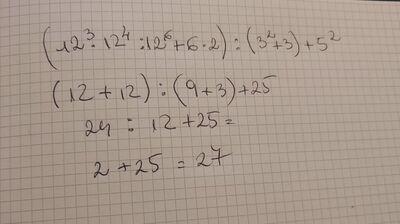 (12³·12⁴:12⁶+6·2):(3²+3)+5²
(12+12):(9+3)+25
24:12+25=
2+25=27